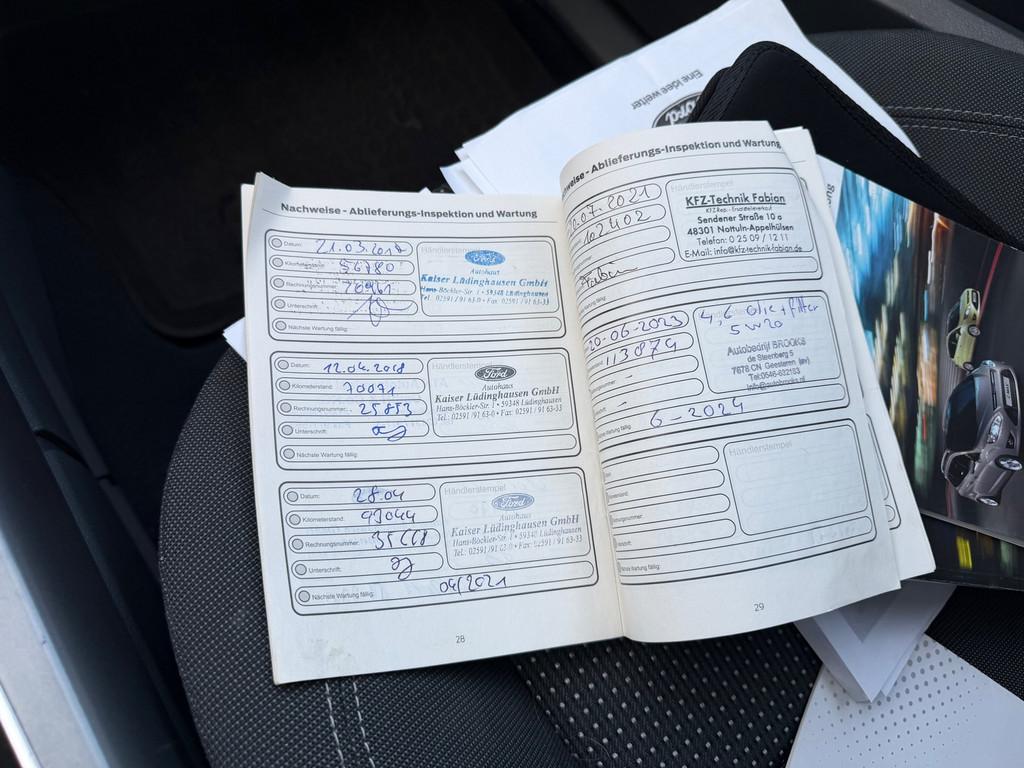 Eine Idee weiter
Ford
Nachweise - Ablieferungs-Inspektion und Wartung
Datum: 21.03.2017
Kilometerstand: 56780
Rechnungsnummer:
Unterschrift:
Nächste Wartung fällig:
Händlerstempel
Ford
Autohaus
Kaiser Lüdinghausen GmbH
Hans-Böckler-Str. 1 • 59348 Lüdinghausen
Tel. 02591 / 91 63-0 • Fax: 02591 / 91 63-33
Datum: 12.04.2018
Kilometerstand: 70071
Rechnungsnummer: 25853
Unterschrift:
Nächste Wartung fällig:
Ford
Autohaus
Kaiser Lüdinghausen GmbH
Hans-Böckler-Str. 1 • 59348 Lüdinghausen
Tel.: 02591 / 91 63-0 • Fax: 02591 / 91 63-33
Datum: 28.04
Kilometerstand:
Rechnungsnummer:
Unterschrift:
Nächste Wartung fällig: 04/2021
Händlerstempel
Ford
Autohaus
Kaiser Lüdinghausen GmbH
Hans-Böckler-Str. 1 • 59348 Lüdinghausen
Tel.: 02591 / 91 63-0 • Fax: 02591 / 91 63-33
28
weise - Ablieferungs-Inspektion und Wartung
.07.2021
102402
Händlerstempel
KFZ-Technik Fabian
KFZ Rep. - Ersatzteilverkauf
Sendener Straße 10 a
48301 Nottuln-Appelhülsen
Telefon: 0 25 09 / 12 11
E-Mail: info@kfz-technik-fabian.de
20-06-2023
113874
6-2024
4,6 Olie + filter
5W20
Autobedrijf BROOKS
de Steenberg 5
7678 CN Geesteren (ov)
Tel:0546-632183
info@autobrooks.nl
Händlerstempel
nächste Wartung fällig:
29